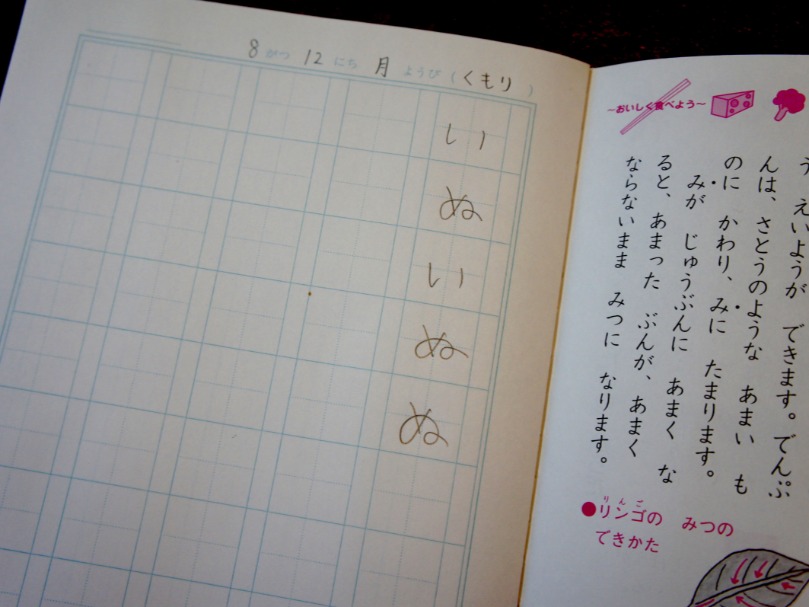 8 がつ 12 にち 月 ようび (くもり)
いぬいぬぬ
～おいしく食べよう～
う えいようが できます。でんぷ
んは、さとうのような あまい も
のに かわり、みに たまります。
みが じゅうぶんに あまく な
ると、あまった ぶんが、あまく
ならないまま みつに なります。
りんご
●リンゴの みつの
できかた